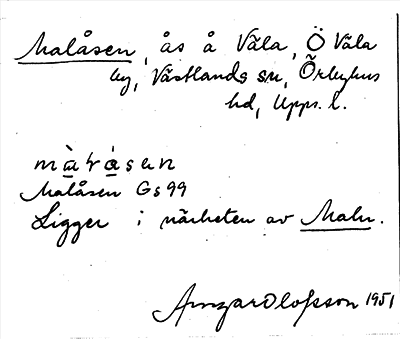 Malåsen, ås å Väla, Ö Väla
by, Västlands sn, Örbyhus
hd, Upps. l.
màƚásen
Malåsen Gs 99
Ligger i närheten av Maln.
Olofsson 1951